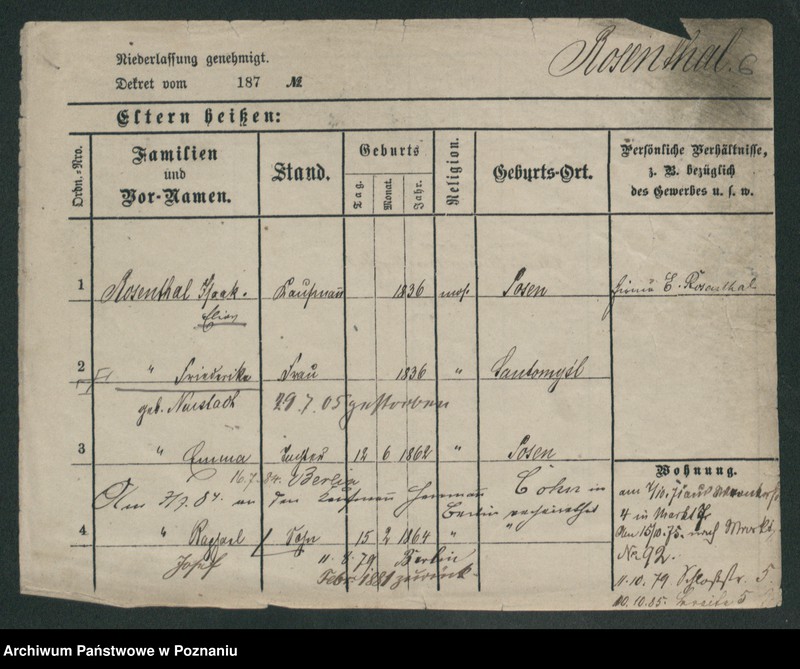 Niederlassung genehmigt.
Dekret vom 187 №
Rosenthal.
Eltern heißen:
Ordn.-Nro.
Familien
und
Vor-Namen.
Stand.
Geburts
Tag.
Monat.
Jahr.
Religion.
Geburts-Ort.
Persönliche Verhältnisse,
z. B. bezüglich
des Gewerbes u. s. w.
1 Rosenthal Isaak. Kaufmann 1836 mos. Posen Firma E. Rosenthal
Elias
2 " Friederike Frau 1836 " Santomyśl
geb. Neustadt 29 7. 05 gestorben
3 " Emma Tochter 12 6 1862 " Posen
16.7.84. Berlin
Am 7/7. 84. an den Kaufmann Herrmann Cohn in
Berlin verheirathet
4 " Raphael Sohn 15 2 1864 " "
Josef 11. 8. 79 Berlin
Febr. 1881 zurück
Wohnung.
4 in Markt
Am 15/10. 75. nach Markt
No 92.
11.10. 79 Schloßstr. 5.
10.10.85. Breite 5
Archiwum Państwowe w Poznaniu